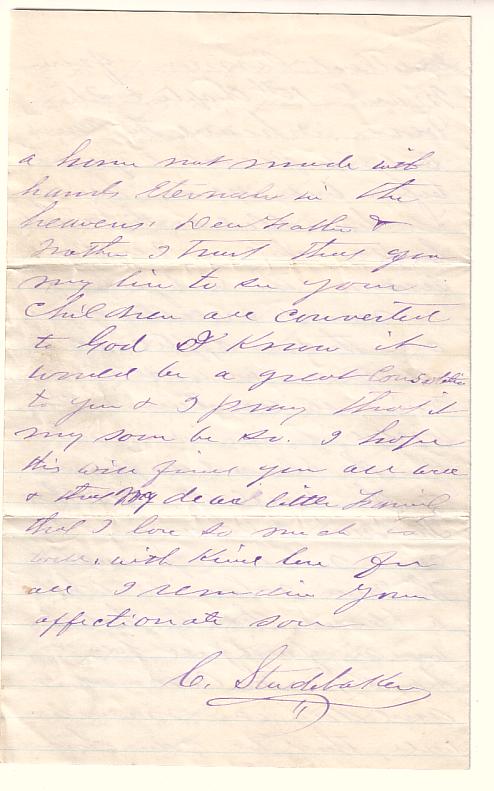 a home not made with
hands Eternal in the
heavens. Dear Father &
Mother I trust that you
my live to see your
children all converted
to God I Know it
would be a great Consolation
to you & I pray that it
my soon be so. I hope
this will find you all well
& that My dear little Family
that I love so much is
well. with Kind love for
all I remain your
affectionate son
C. Studebaker